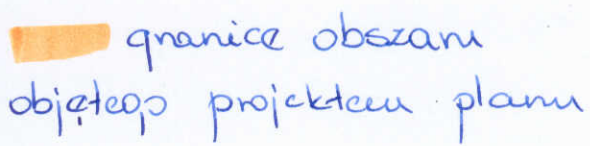 granice obszaru
objętego projektem planu